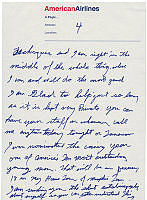 AmericanAirlines
In Flight...
Altitude;
Location;
4
and I am right in the
middle of the whole thing, also
I am and will do the most good
I am Glad to help just so long
as it is kept very Private. You can
have your staff or whomever call
me anytime today tonight or Tomorrow
I was nominated this coming year
one of America's Ten Most outstanding
young men. That will be in January
18 in my Home Town of Memphis, Tenn
I am sending you the short autobiography
about myself so you can understand this